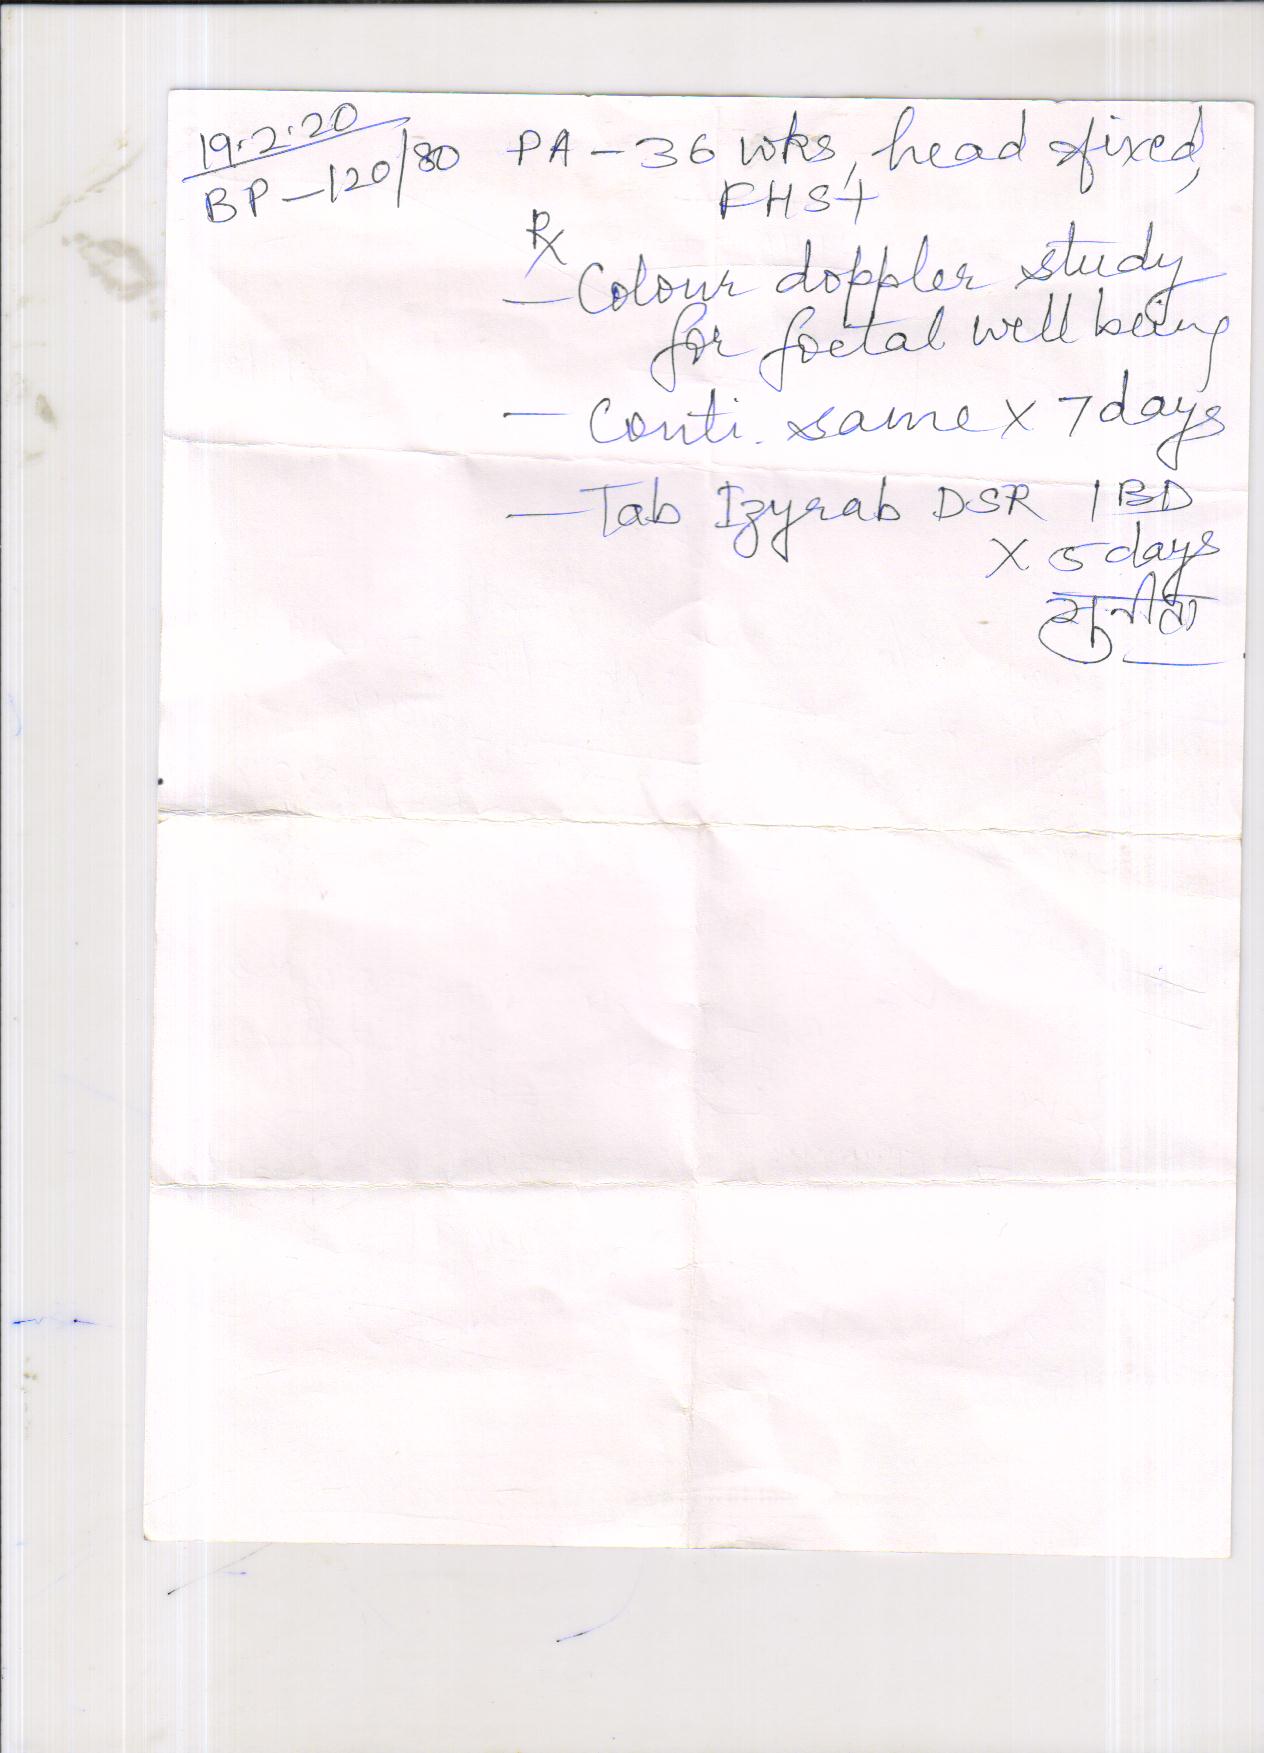 19.2.20
BP - 120/80
PA - 36 wks, head fixed,
FHS+
Rx
- Colour doppler study
for foetal well being
- Conti. same x 7 days
- Tab Izyrab DSR 1 BD
x 5 days
सुनीता